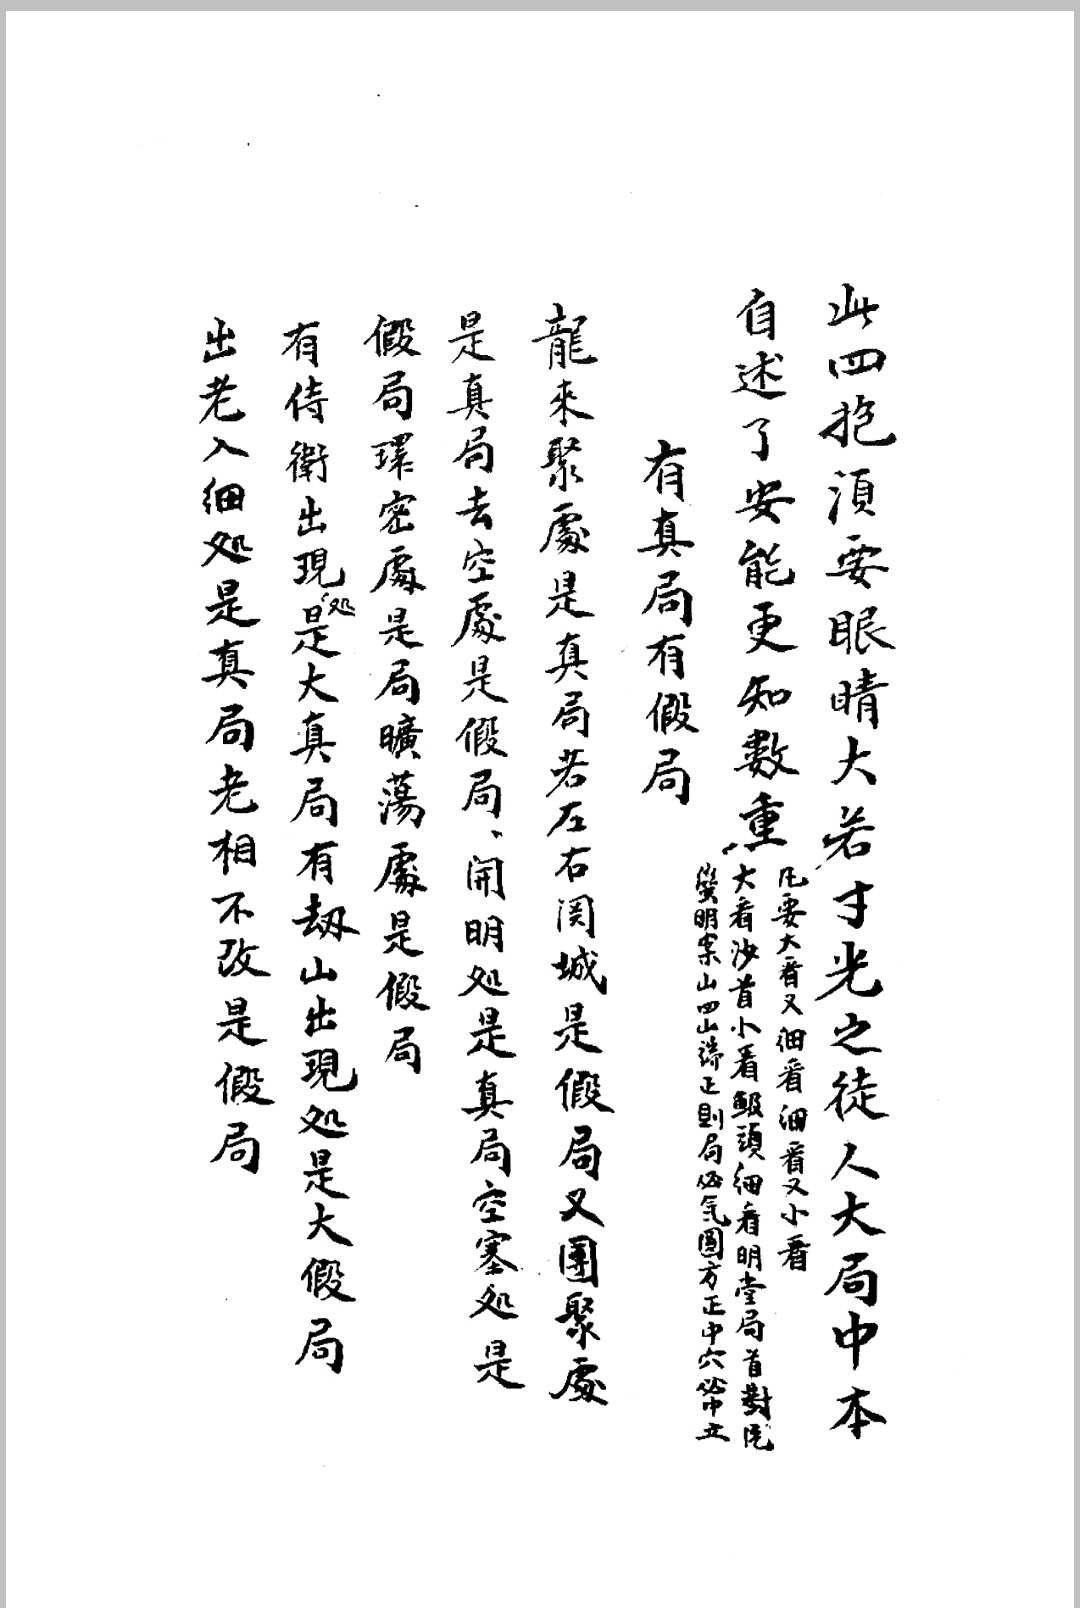 此四抱須要眼晴大若寸光之徒人大局中本
自述了安能更知數重
凡要大看又细看细看又小看
大看沙首小看頭细看明堂局首對
明案山四山端正則局必気圓方正中穴必中立
有真局有假局
龍來聚處是真局若左右関城是假局又團聚處
是真局去空處是假局、開明处是真局空塞处是
假局環密處是局曠蕩處是假局
有侍衛出現处是大真局有刼山出現处是大假局
出老入细处是真局老相不改是假局